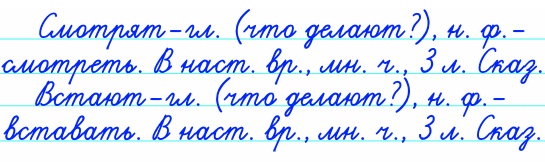 Смотрят – гл. (что делают?), н. ф. –
смотреть. В наст. вр., мн. ч., 3 л. Сказ.
Встают – гл. (что делают?), н. ф. –
вставать. В наст. вр., мн. ч., 3 л. Сказ.